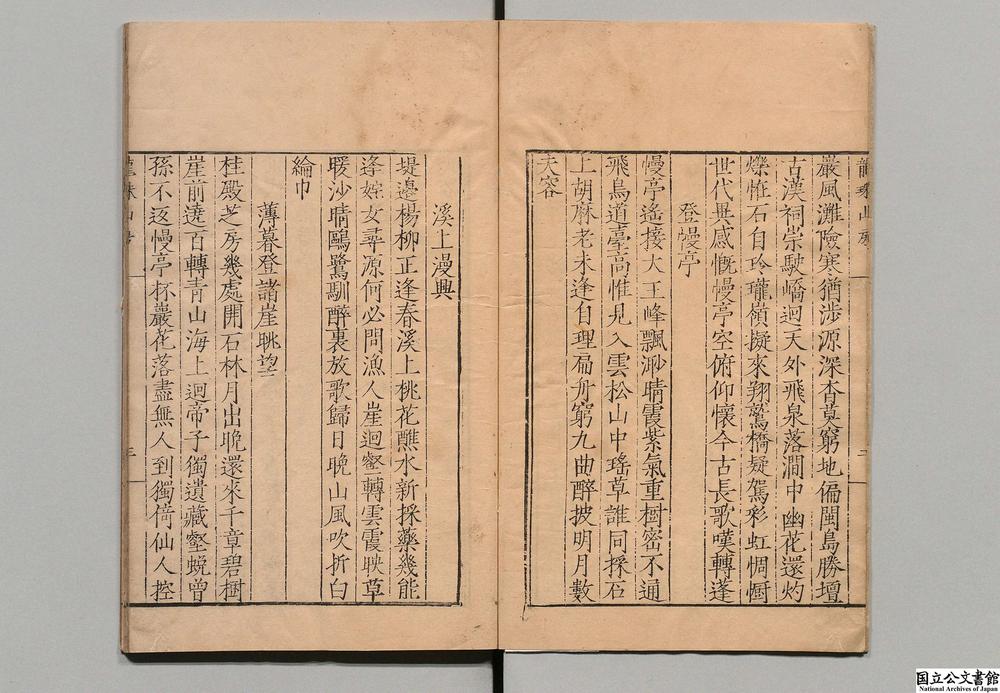 巖風灘險寒猶渉源深杳莫窮地偏閩島勝壇
古漢祠崇駛嶠迴天外飛泉落澗中幽花還灼
爍恠石自玲瓏嶺擬來翔鷲橋疑駕彩虹惆
世代異感慨幔亭空俯仰懷今古長歌嘆轉蓬
登幔亭
幔亭遙接大王峰飄渺晴霞紫氣重樹密不通
飛鳥道臺高惟見入雲松山中瑤草誰同採石
上胡麻老未逢自理扁舟窮九曲醉披明月數
芙容
溪上漫興
堤邊楊柳正逢春溪上桃花蘸水新採藥幾能
逢姹女尋源何必問漁人崖迴壑轉雲霞映草
暖沙晴鷗鷺馴醉裏放歌歸日晚山風吹折白
綸巾
薄暮登諸崖眺望
桂殿芝房幾處開石林月出晚還來千章碧樹
崖前遶百轉青山海上迴帝子獨遺藏壑蛻曾
孫不返幔亭杯巖花落盡無人到獨倚仙人控
三
国立公文書館
National Archives of Japan